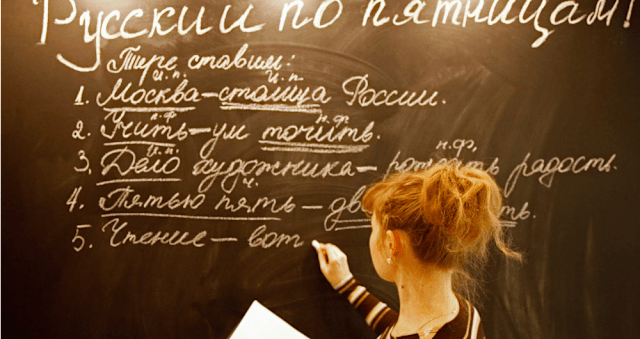 Русский по пятницам!
Тире ставим:
и.п. и.п.
1. Москва – столица России.
н.ф. н.ф.
2. Учить – ум точить.
и.п. н.ф.
3. Дело художника – радость.
ч.
4. Пятью пять –
5. Чтение – вот